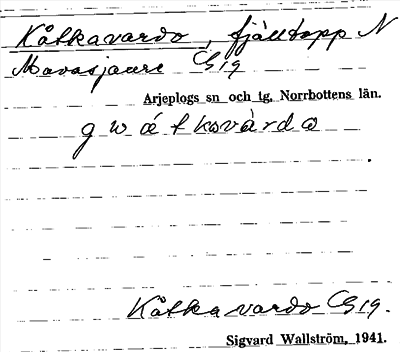 Kåtkavardo, fjälltopp N
Mavasjaure CG 19
Arjeplogs sn och tg, Norrbottens län.
g w á t kovàrdo
Kåtkavardo CG 19.
Sigvard Wallström, 1941.